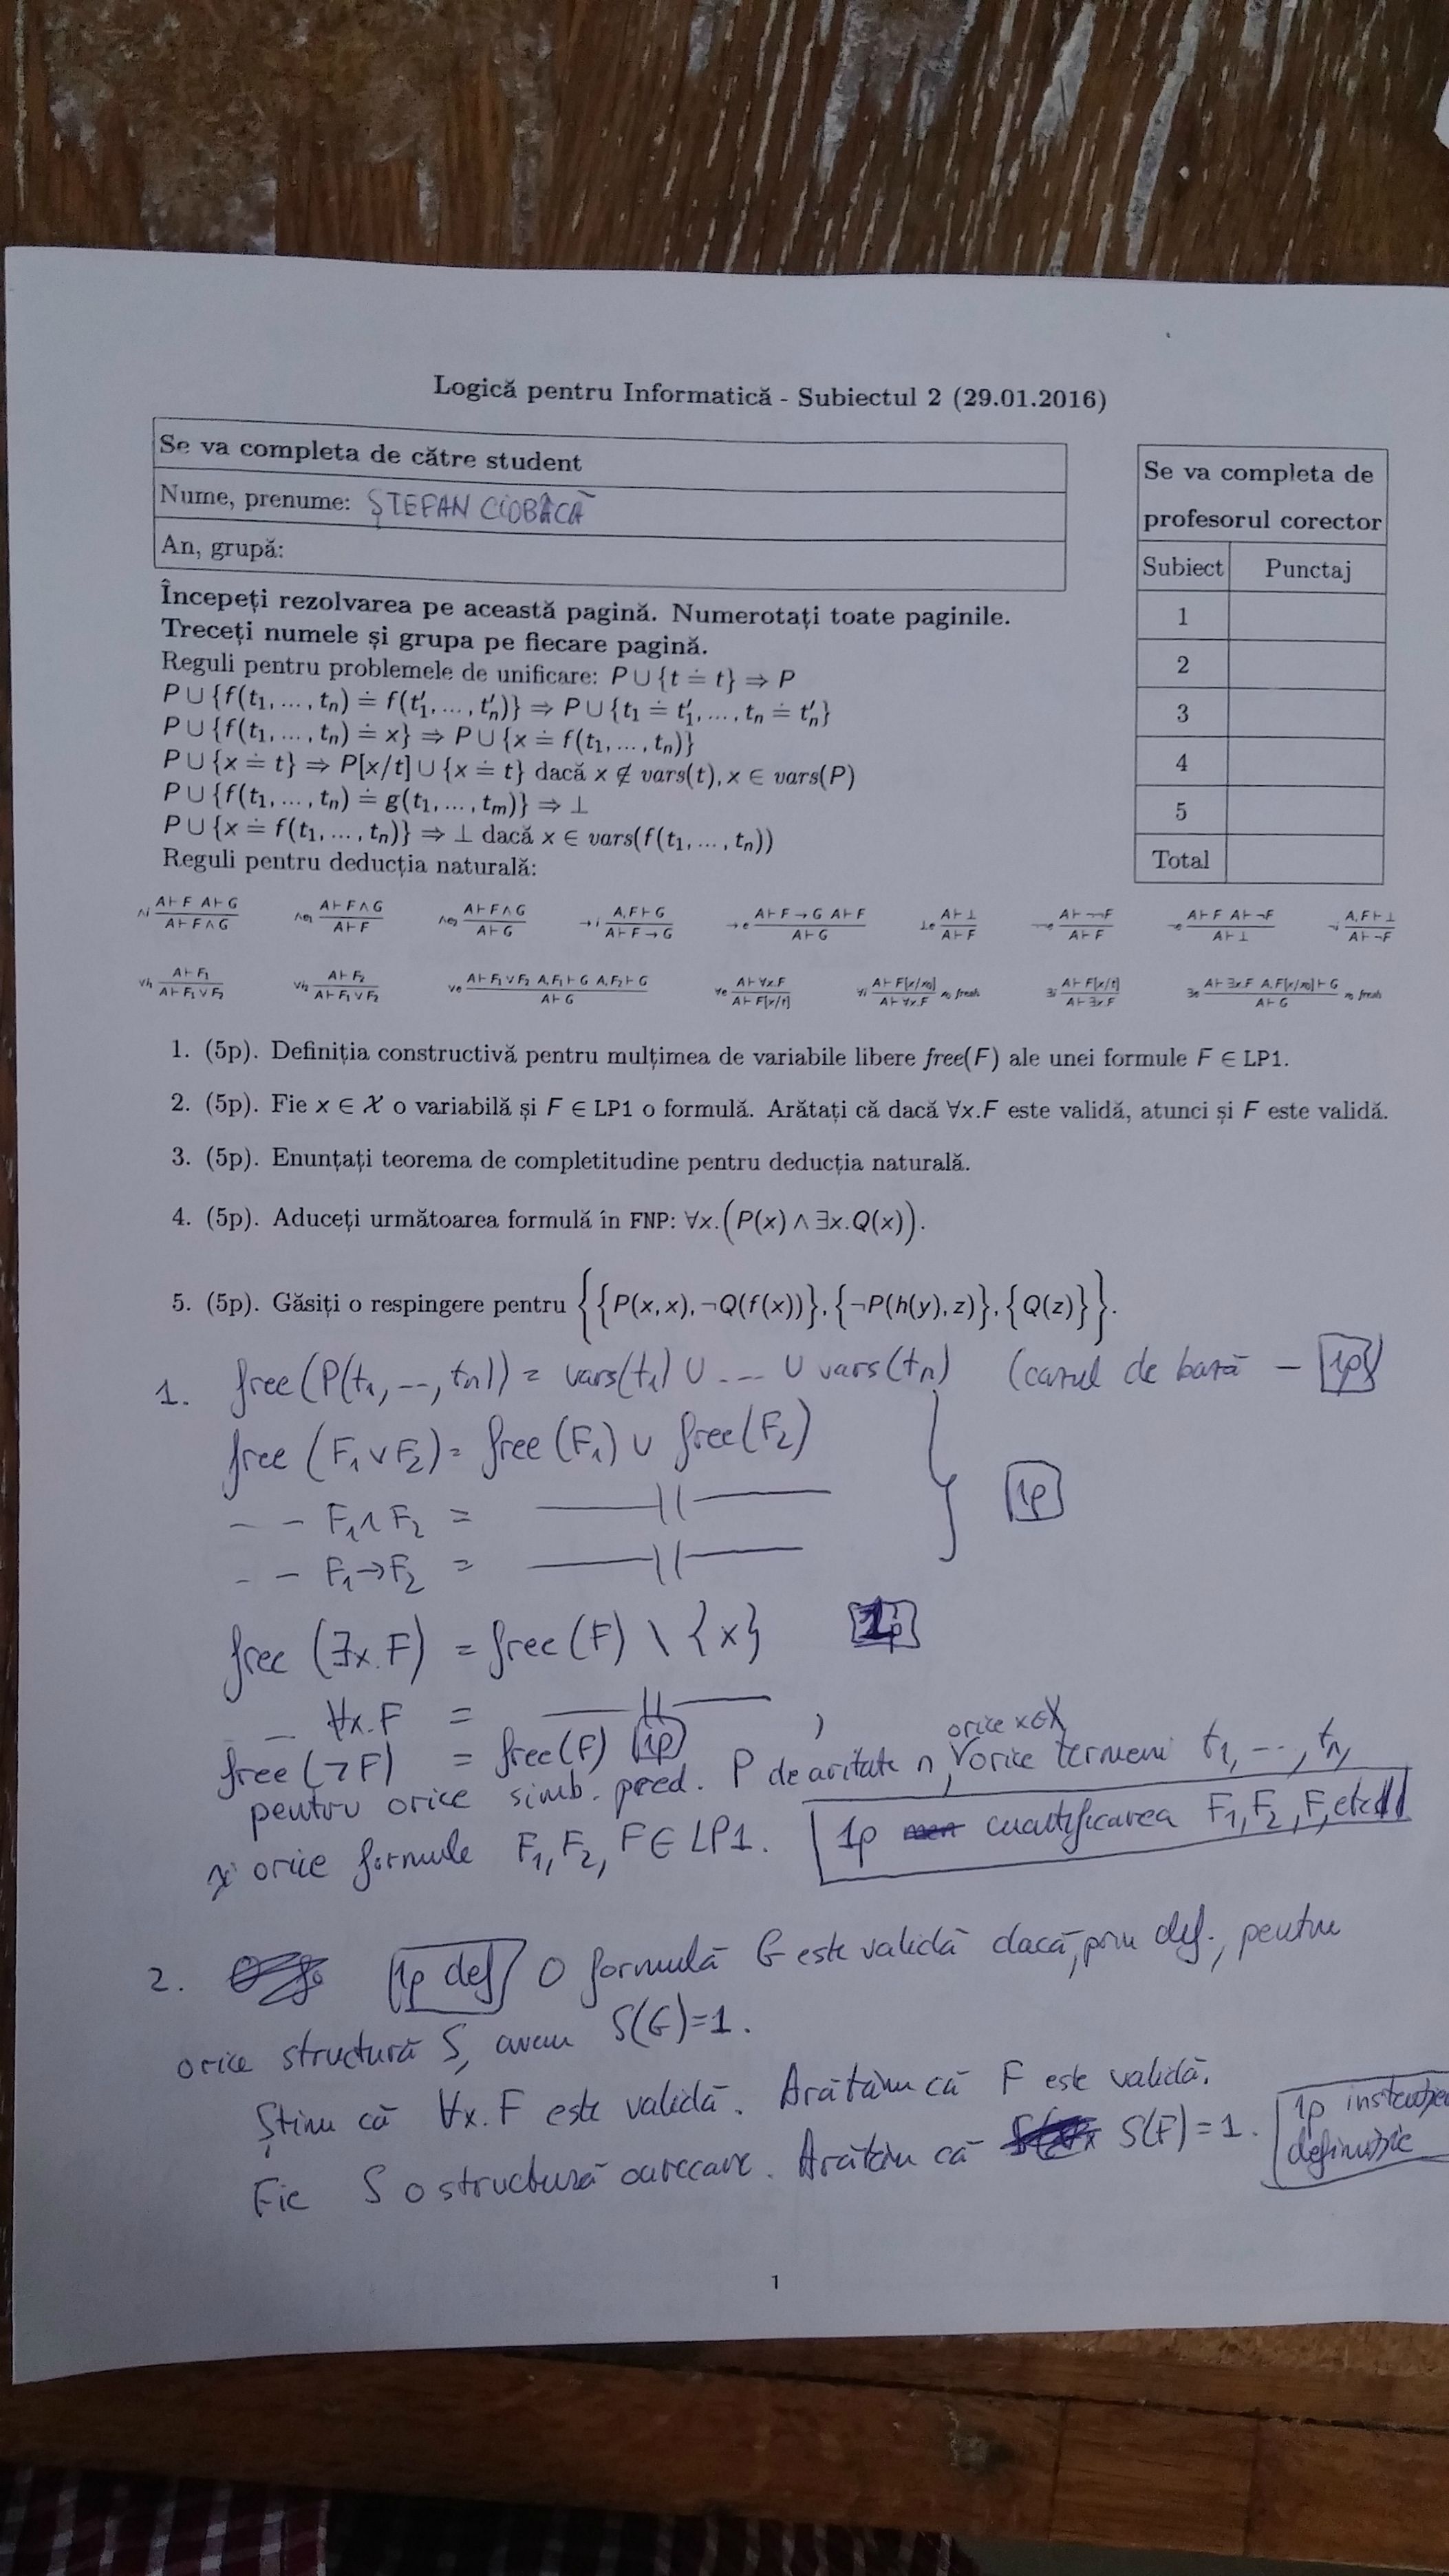 Logică pentru Informatică - Subiectul 2 (29.01.2016)
Se va completa de către student
Nume, prenume: ȘTEFAN CIOBÂCĂ
An, grupă:
Se va completa de
profesorul corector
Subiect Punctaj
1
2
3
4
5
Total
Începeți rezolvarea pe această pagină. Numerotați toate paginile.
Treceți numele și grupa pe fiecare pagină.
Reguli pentru problemele de unificare: P ∪ {t ≐ t} ⇒ P
P ∪ {f(t₁, ..., tₙ) ≐ f(t′₁, ..., t′ₙ)} ⇒ P ∪ {t₁ ≐ t′₁, ..., tₙ ≐ t′ₙ}
P ∪ {f(t₁, ..., tₙ) ≐ x} ⇒ P ∪ {x ≐ f(t₁, ..., tₙ)}
P ∪ {x ≐ t} ⇒ P[x/t] ∪ {x ≐ t} dacă x ∉ vars(t), x ∈ vars(P)
P ∪ {f(t₁, ..., tₙ) ≐ g(t₁, ..., tₘ)} ⇒ ⊥
P ∪ {x ≐ f(t₁, ..., tₙ)} ⇒ ⊥ dacă x ∈ vars(f(t₁, ..., tₙ))
Reguli pentru deducția naturală:
∧i A⊢F A⊢G / A⊢F∧G ∧e₁ A⊢F∧G / A⊢F ∧e₂ A⊢F∧G / A⊢G →i A,F⊢G / A⊢F→G →e A⊢F→G A⊢F / A⊢G ⊥e A⊢⊥ / A⊢F ¬¬e A⊢¬¬F / A⊢F ¬e A⊢F A⊢¬F / A⊢⊥ ¬i A,F⊢⊥ / A⊢¬F
∨i₁ A⊢F₁ / A⊢F₁∨F₂ ∨i₂ A⊢F₂ / A⊢F₁∨F₂ ∨e A⊢F₁∨F₂ A,F₁⊢G A,F₂⊢G / A⊢G ∀e A⊢∀x.F / A⊢F[x/t] ∀i A⊢F[x/x₀] / A⊢∀x.F x₀ fresh ∃i A⊢F[x/t] / A⊢∃x.F ∃e A⊢∃x.F A,F[x/x₀]⊢G / A⊢G x₀ fresh
1. (5p). Definiția constructivă pentru mulțimea de variabile libere free(F) ale unei formule F ∈ LP1.
2. (5p). Fie x ∈ 𝒳 o variabilă și F ∈ LP1 o formulă. Arătați că dacă ∀x.F este validă, atunci și F este validă.
3. (5p). Enunțați teorema de completitudine pentru deducția naturală.
4. (5p). Aduceți următoarea formulă în FNP: ∀x.(P(x) ∧ ∃x.Q(x)).
5. (5p). Găsiți o respingere pentru {{P(x, x), ¬Q(f(x))}, {¬P(h(y), z)}, {Q(z)}}.
1. free(P(t₁, --, tₙ)) = vars(t₁) ∪ -.-- ∪ vars(tₙ) (cazul de bază - 1p)
free (F₁ ∨ F₂) = free (F₁) ∪ free(F₂)
- - F₁ ∧ F₂ = —||—
1p
- - F₁ → F₂ = —||—
free (∃x.F) = free (F) \ {x} 1p
- ∀x.F = —||—
free (¬F) = free(F) 1p ,
orice x∈X
pentru orice simb. pred. P de aritate n, orice termeni t₁, --, tₙ,
și orice formule F₁, F₂, F ∈ LP1. 1p cuantificarea F₁, F₂, F, etc
2. 1p def O formulă G este validă dacă, prin def., pentru
orice structură S, avem S(G)=1.
Știm că ∀x.F este validă. Arătăm că F este validă.
Fie S o structură oarecare. Arătăm că S(F)=1. 1p
definiție
1